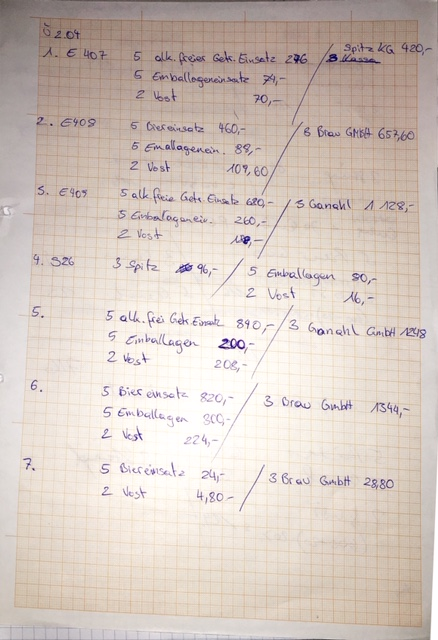 Ü 2.04
1. E 407 5 alk. freier Getr. Einsatz 276 / Spitz KG 420,-
5 Emballageneinsatz 74,- 3 Kassa
2 Vost 70,-
2. E408 5 Biereinsatz 460,- / 3 Brau GmbH 657,60
5 Emallagenein. 88,-
2 Vost 109,60
3. E409 5 alk.freie Getr. Einsatz 680,- / 3 Ganahl 1 128,-
5 Emballagenein. 260,-
2 Vost
4. S26 3 Spitz 96,- / 5 Emballagen 80,-
2 Vost 16,-
5. 5 alk. frei Getr. Einsatz 840,- / 3 Ganahl GmbH 1248
5 Emballagen 200,-
2 Vost 208,-
6. 5 Biereinsatz 820,- / 3 Brau GmbH 1344,-
5 Emballagen 300,-
2 Vost 224,-
7. 5 Biereinsatz 24,- / 3 Brau GmbH 28,80
2 Vost 4,80-